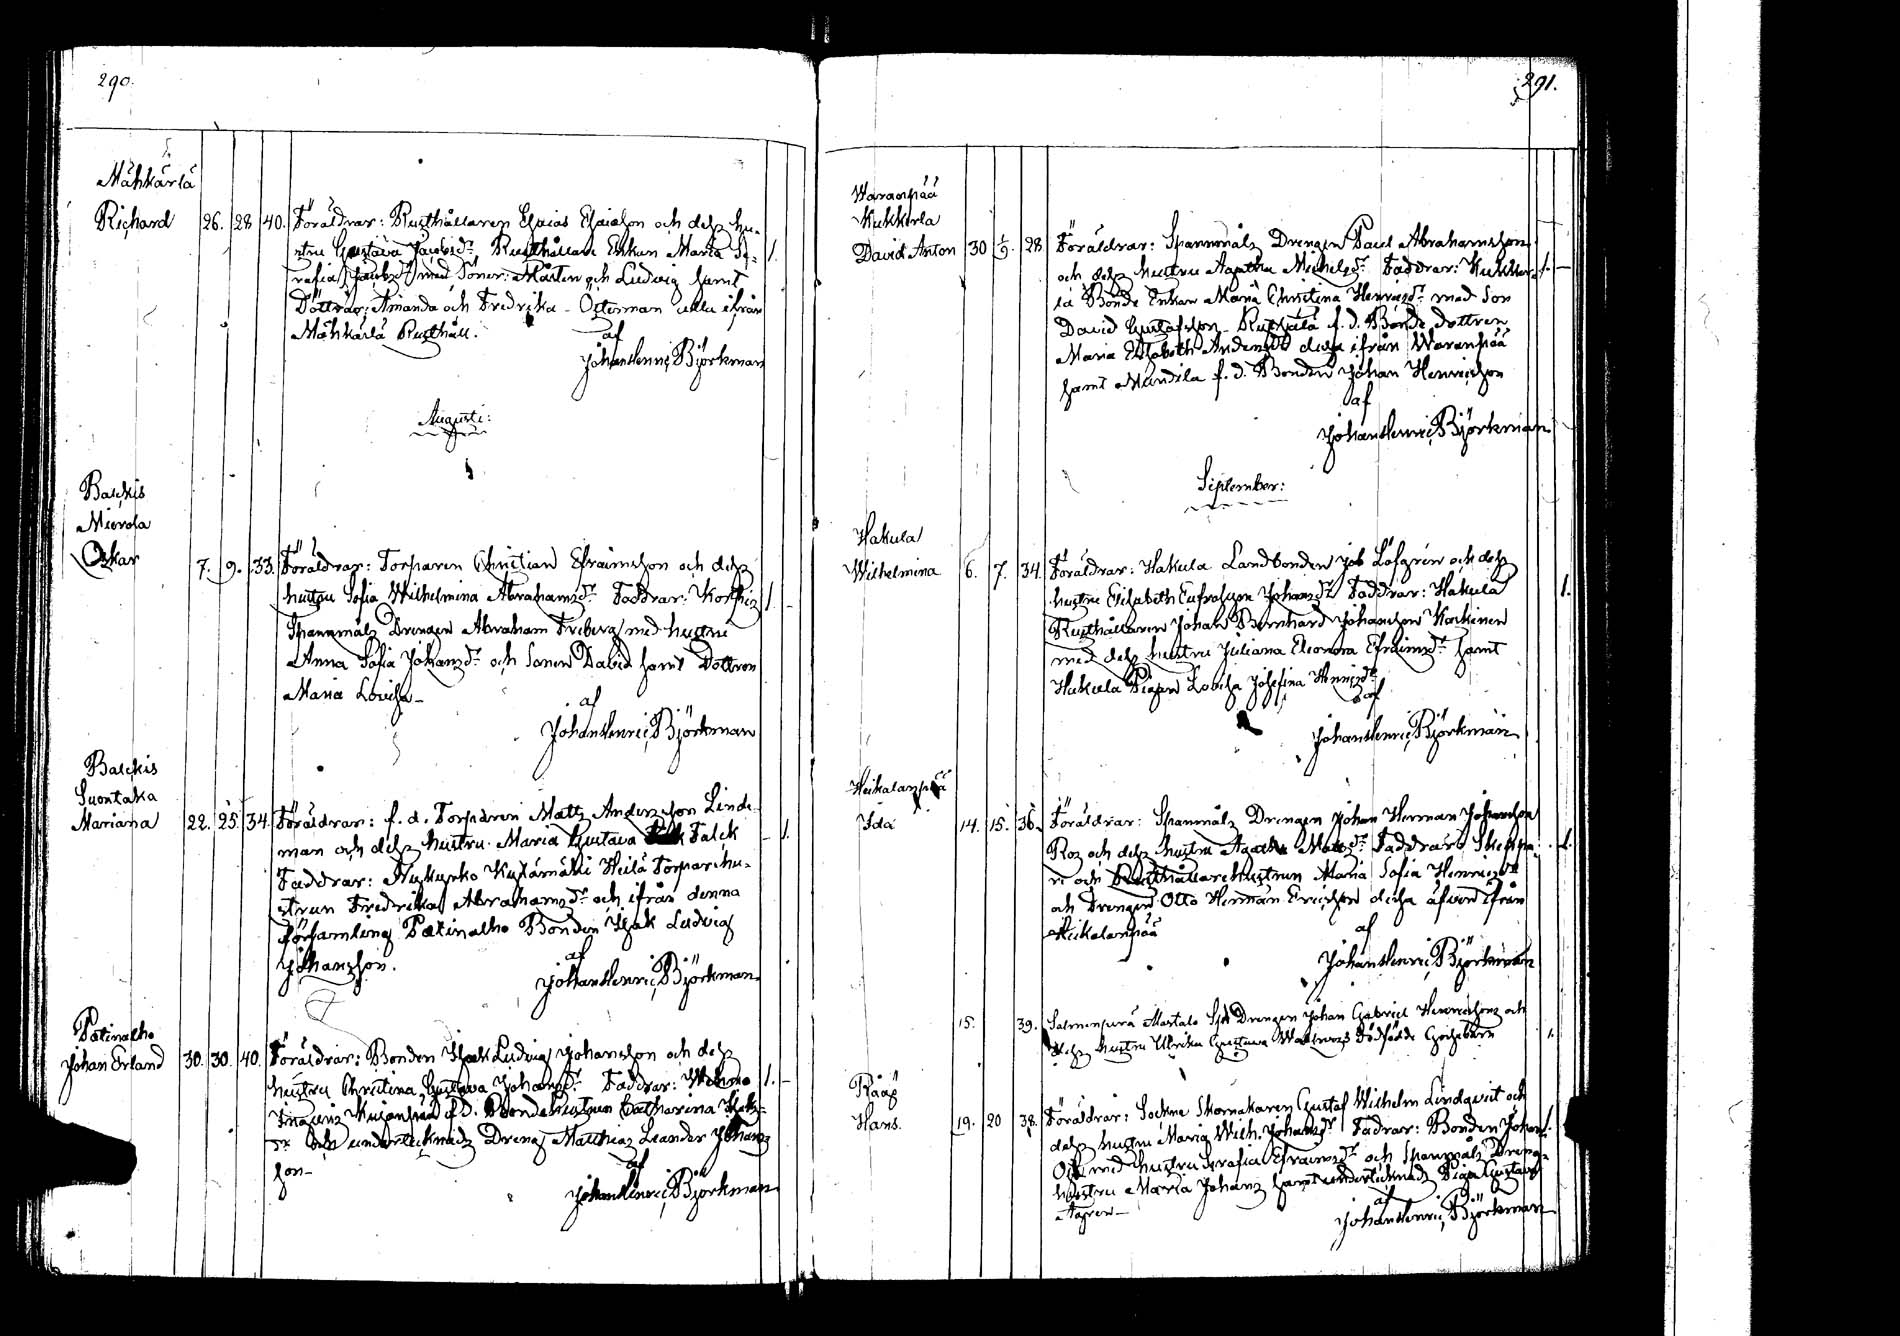 290.
Mähkärlä
Richard 26. 28 40. Föräldrar: Rusthållaren Esaias Esaiasson och dess hu-
stru Gustava Jacobsdr. Rusthållare Enkan Maria Se-
rafia Jacobsdr med Söner: Mårten och Ludvig samt
Döttrar: Amanda och Fredrika - Österman alla ifrån
Mähkärlä Rusthåll.
af
Johan Henric Björkman
Augusti:
Baskis
Mierola
Oskar 7. 9. 33. Föräldrar: Torparen Christian Efraimsson och dess
hustru Sofia Wilhelmina Abrahamsdr. Faddrar:
Spannmåls Drengen Abraham Friberg med hustru
Anna Sofia Johansdr. och Sonen David samt Dottren
Maria Lovisa -
af
Johan Henric Björkman
Baskis
Suontaka
Mariana 22. 25. 34. Föräldrar: f. d. Torparen Matts Andersson Linde-
man och dess hustru Maria Gustava Falck
Faddrar: Nykyrko Kytämäki Heilä Torpare hu-
strun Fredrika Abrahamsdr. och ifrån denna
församling Patinalho Bonden Isak Ludvig
Johansson.
af
Johan Henric Björkman
Patinalho
Johan Erland 30. 30. 40. Föräldrar: Bonden Isak Ludvig Johansson och dess
hustru Christina Gustava Johansdr. Faddrar: Wehmo
f. d. Bonde hustrun Catharina Isaks-
dr. och undertecknads Dreng Matthias Leander Johans-
son -
af
Johan Henric Björkman
291.
Waranpää
Kukkola
David Anton 30 1/9. 28 Föräldrar: Spannmåls Drengen Paul Abrahamsson
och dess hustru Agatha Michelsdr. Faddrar: Kukko-
la Bonde Enkan Maria Christina Henricsdr. med Son
David Gustafsson - f. d. Bonde dottren
Maria Elisabeth Andersdr dessa ifrån Waranpää
samt Mandila f. d. Bonden Johan Henricsson
af
Johan Henric Björkman
September:
Hakula
Wilhelmina 6. 7. 34. Föräldrar: Hakula Landbonden Job Löfgren och dess
hustru Elisabeth Eufrosyne Johansdr. Faddrar: Hakula
Rusthållaren Johan Bernhard Johansson Kaskinen
med dess hustru Juliana Eleonora Efraimsdr. samt
Hakula Pigan Lovisa Josefina Henricsdr.
af
Johan Henric Björkman
Heikalanpää
Ida 14. 15. 36. Föräldrar: Spanmåls Drengen Johan Herman Johansson
Ros och dess hustru Agatha Matsdr. Faddrar: Skeppa-
re och Rusthållare hustrun Maria Sofia Henricsdr
och Drengen Otto Herman Ericsson dessa äfven ifrån
Heikalanpää
af
Johan Henric Björkman
15. 39. Salmenperä Martals Sp. Drengen Johan Gabriel Henricssons och
dess hustru Ulrika Gustava dödfödde Gossebarn
Råäg
Hans. 19. 20 38. Föräldrar: Sockne Skomakaren Gustaf Wilhelm Lindqvist och
dess hustru Maria Wilh. Johansdr. Fadrar: Bonden Johan
med hustru Serafia Efraimsdr. och Spanmåls Drengs
hustru Maria Johans samt undertecknads Piga Gustava
Agren -
af
Johan Henric Björkman